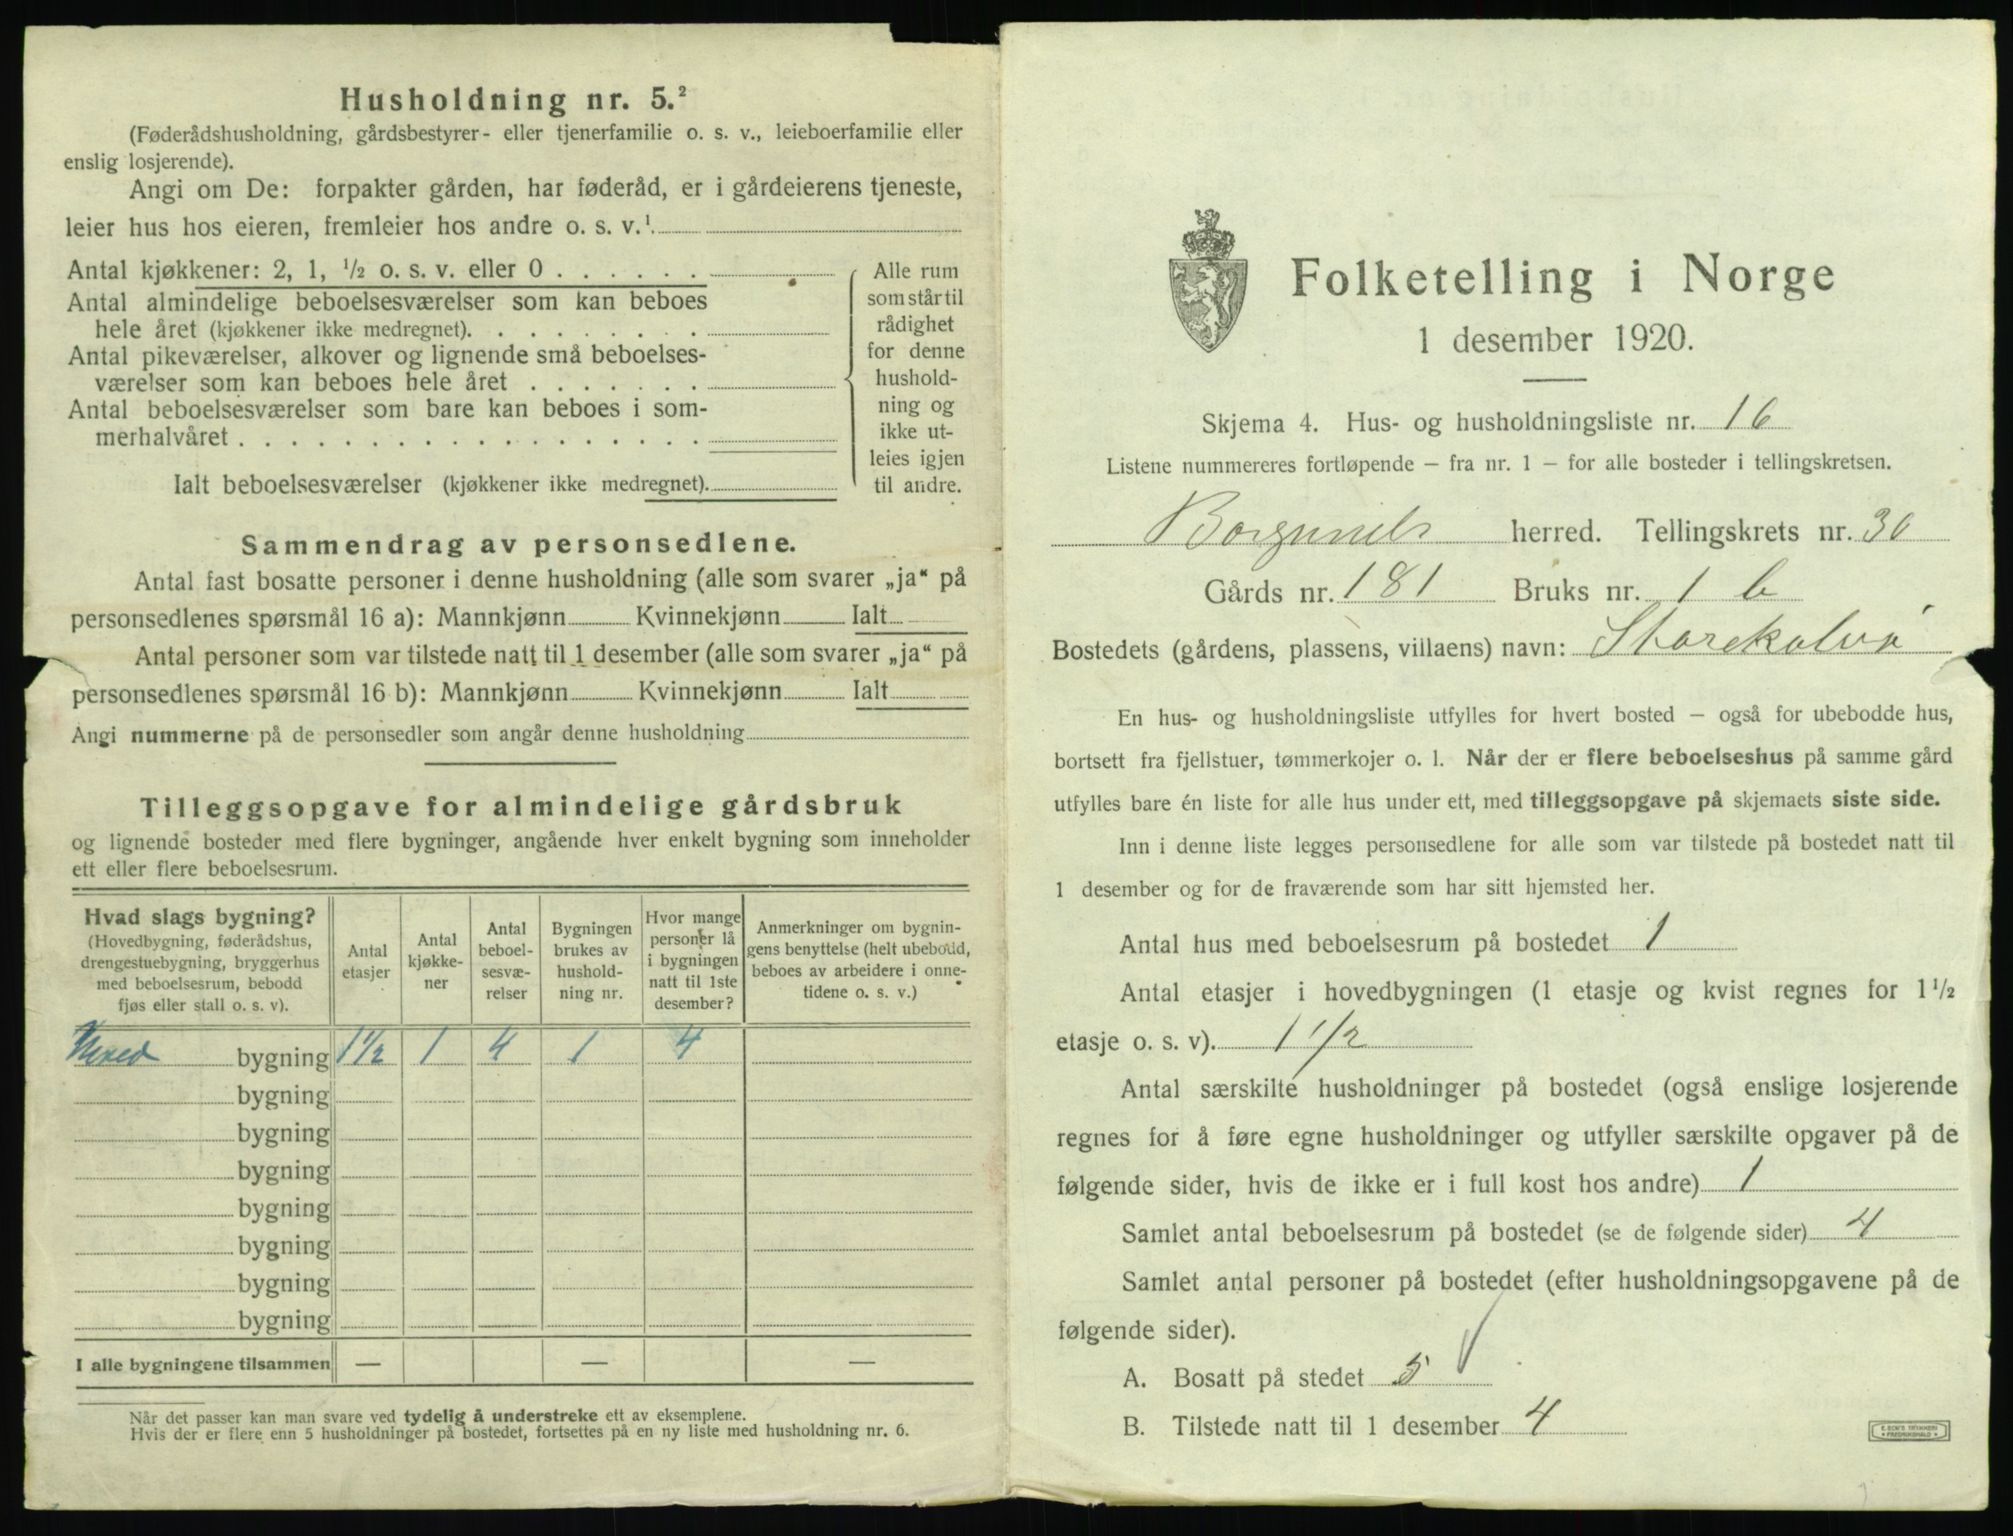 Husholdning nr. 5.²
(Føderådshusholdning, gårdsbestyrer- eller tjenerfamilie o. s. v., leieboerfamilie eller
enslig losjerende).
Angi om De: forpakter gården, har føderåd, er i gårdeierens tjeneste,
leier hus hos eieren, fremleier hos andre o. s. v.¹
Antal kjøkkener: 2, 1, ½ o. s. v. eller 0
Antal almindelige beboelsesværelser som kan beboes
hele året (kjøkkener ikke medregnet).
Antal pikeværelser, alkover og lignende små beboelses-
værelser som kan beboes hele året
Antal beboelsesværelser som bare kan beboes i som-
merhalvåret
Ialt beboelsesværelser (kjøkkener ikke medregnet).
Alle rum
som står til
rådighet
for denne
hushold-
ning og
ikke ut-
leies igjen
til andre.
Sammendrag av personsedlene.
Antal fast bosatte personer i denne husholdning (alle som svarer „ja“ på
personsedlenes spørsmål 16 a): Mannkjønn Kvinnekjønn Ialt
Antal personer som var tilstede natt til 1 desember (alle som svarer „ja“ på
personsedlenes spørsmål 16 b): Mannkjønn Kvinnekjønn Ialt
Angi nummerne på de personsedler som angår denne husholdning
Tilleggsopgave for almindelige gårdsbruk
og lignende bosteder med flere bygninger, angående hver enkelt bygning som inneholder
ett eller flere beboelsesrum.
Hvad slags bygning?
(Hovedbygning, føderådshus,
drengestuebygning, bryggerhus
med beboelsesrum, bebodd
fjøs eller stall o. s. v).
Antal
etasjer
Antal
kjøkke-
ner
Antal
beboel-
sesvæ-
relser
Bygningen
brukes av
hushold-
ning nr.
Hvor mange
personer lå
i bygningen
natt til 1ste
desember?
Anmerkninger om bygnin-
gens benyttelse (helt ubebodd,
beboes av arbeidere i onne-
tidene o. s. v.)
bygning 1½ 1 4 1 4
bygning
bygning
bygning
bygning
bygning
bygning
bygning
I alle bygningene tilsammen — — —
Når det passer kan man svare ved tydelig å understreke ett av eksemplene.
Hvis der er flere enn 5 husholdninger på bostedet, fortsettes på en ny liste med husholdning nr. 6.
Folketelling i Norge
1 desember 1920.
Skjema 4. Hus- og husholdningsliste nr. 16
Listene nummereres fortløpende — fra nr. 1 — for alle bosteder i tellingskretsen.
herred. Tellingskrets nr. 30
Gårds nr. 181 Bruks nr. 1 b
Bostedets (gårdens, plassens, villaens) navn: Storekalvø
En hus- og husholdningsliste utfylles for hvert bosted — også for ubebodde hus,
bortsett fra fjellstuer, tømmerkojer o. l. Når der er flere beboelseshus på samme gård
utfylles bare én liste for alle hus under ett, med tilleggsopgave på skjemaets siste side.
Inn i denne liste legges personsedlene for alle som var tilstede på bostedet natt til
1 desember og for de fraværende som har sitt hjemsted her.
Antal hus med beboelsesrum på bostedet 1
Antal etasjer i hovedbygningen (1 etasje og kvist regnes for 1½
etasje o. s. v). 1 1/2
Antal særskilte husholdninger på bostedet (også enslige losjerende
regnes for å føre egne husholdninger og utfyller særskilte opgaver på de
følgende sider, hvis de ikke er i full kost hos andre) 1
Samlet antal beboelsesrum på bostedet (se de følgende sider) 4
Samlet antal personer på bostedet (efter husholdningsopgavene på de
følgende sider).
A. Bosatt på stedet 5
B. Tilstede natt til 1 desember 4